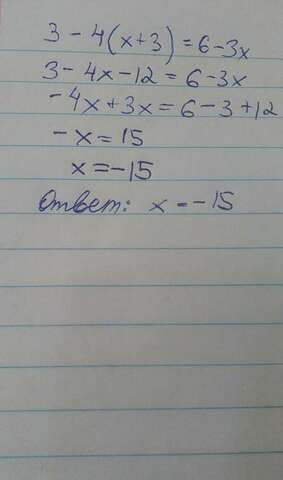 3 - 4(x+3) = 6 - 3x
3 - 4x - 12 = 6 - 3x
- 4x + 3x = 6 - 3 + 12
- x = 15
x = -15
Ответ: x = -15